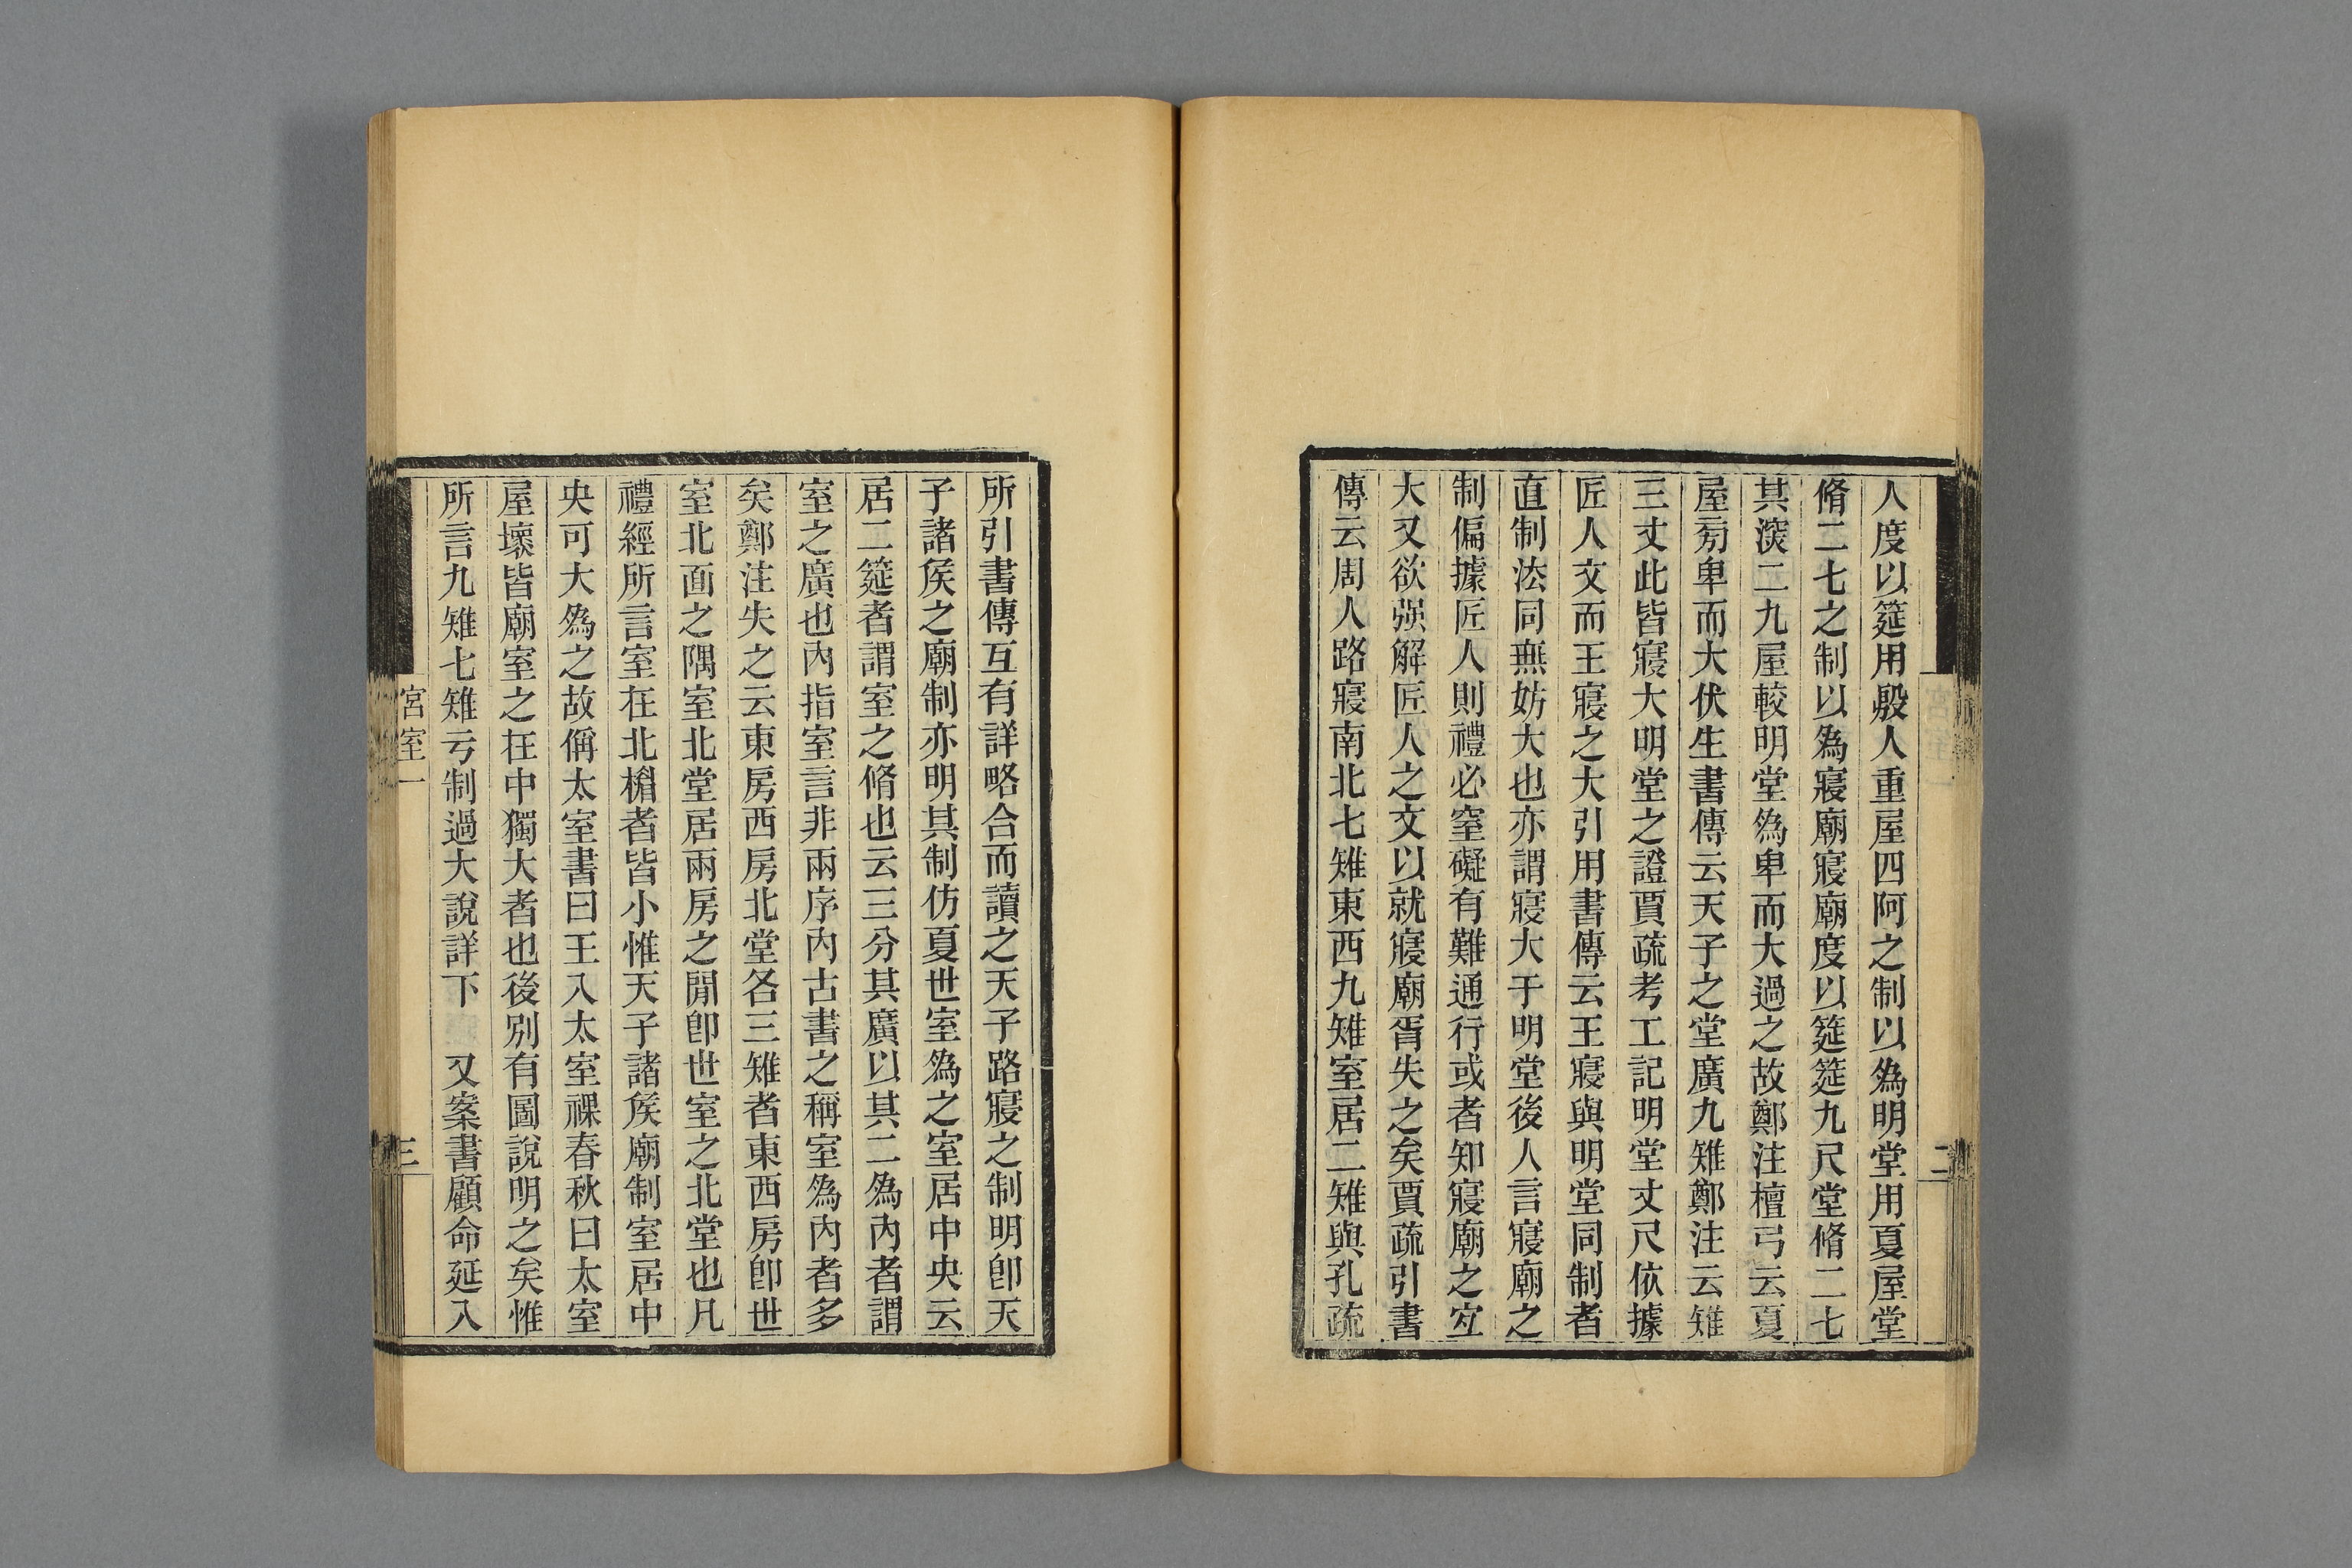 人度以筵用殷人重屋四阿之制以爲明堂用夏屋堂
脩二七之制以爲寢廟寢廟度以筵筵九尺堂脩二七
其湥二九屋較明堂爲卑而大過之故鄭注檀弓云夏
屋旁卑而大伏生書傳云天子之堂廣九雉鄭注云雉
三丈此皆寢大明堂之證賈疏考工記明堂丈尺依據
匠人文而王寢之大引用書傳云王寢與明堂同制者
直制法同無妨大也亦謂寢大于明堂後人言寢廟之
制偏據匠人則禮必窒礙有難通行或者知寢廟之宐
大又欲强解匠人之文以就寢廟胥失之矣賈疏引書
傳云周人路寢南北七雉東西九雉室居二雉與孔疏
二
所引書傳互有詳略合而讀之天子路寢之制明卽天
子諸矦之廟制亦明其制仿夏世室爲之室居中央云
居二筵者謂室之脩也云三分其廣以其二爲內者謂
室之廣也內指室言非兩序內古書之稱室爲內者多
矣鄭注失之云東房西房北堂各三雉者東西房卽世
室北面之隅室北堂居兩房之閒卽世室之北堂也凡
禮經所言室在北楣者皆小惟天子諸矦廟制室居中
央可大爲之故偁太室書曰王入太室祼春秋曰太室
屋壞皆廟室之在中獨大者也後別有圖說明之矣惟
所言九雉七雉亏制過大說詳下 又案書顧命延入
宮室一
三